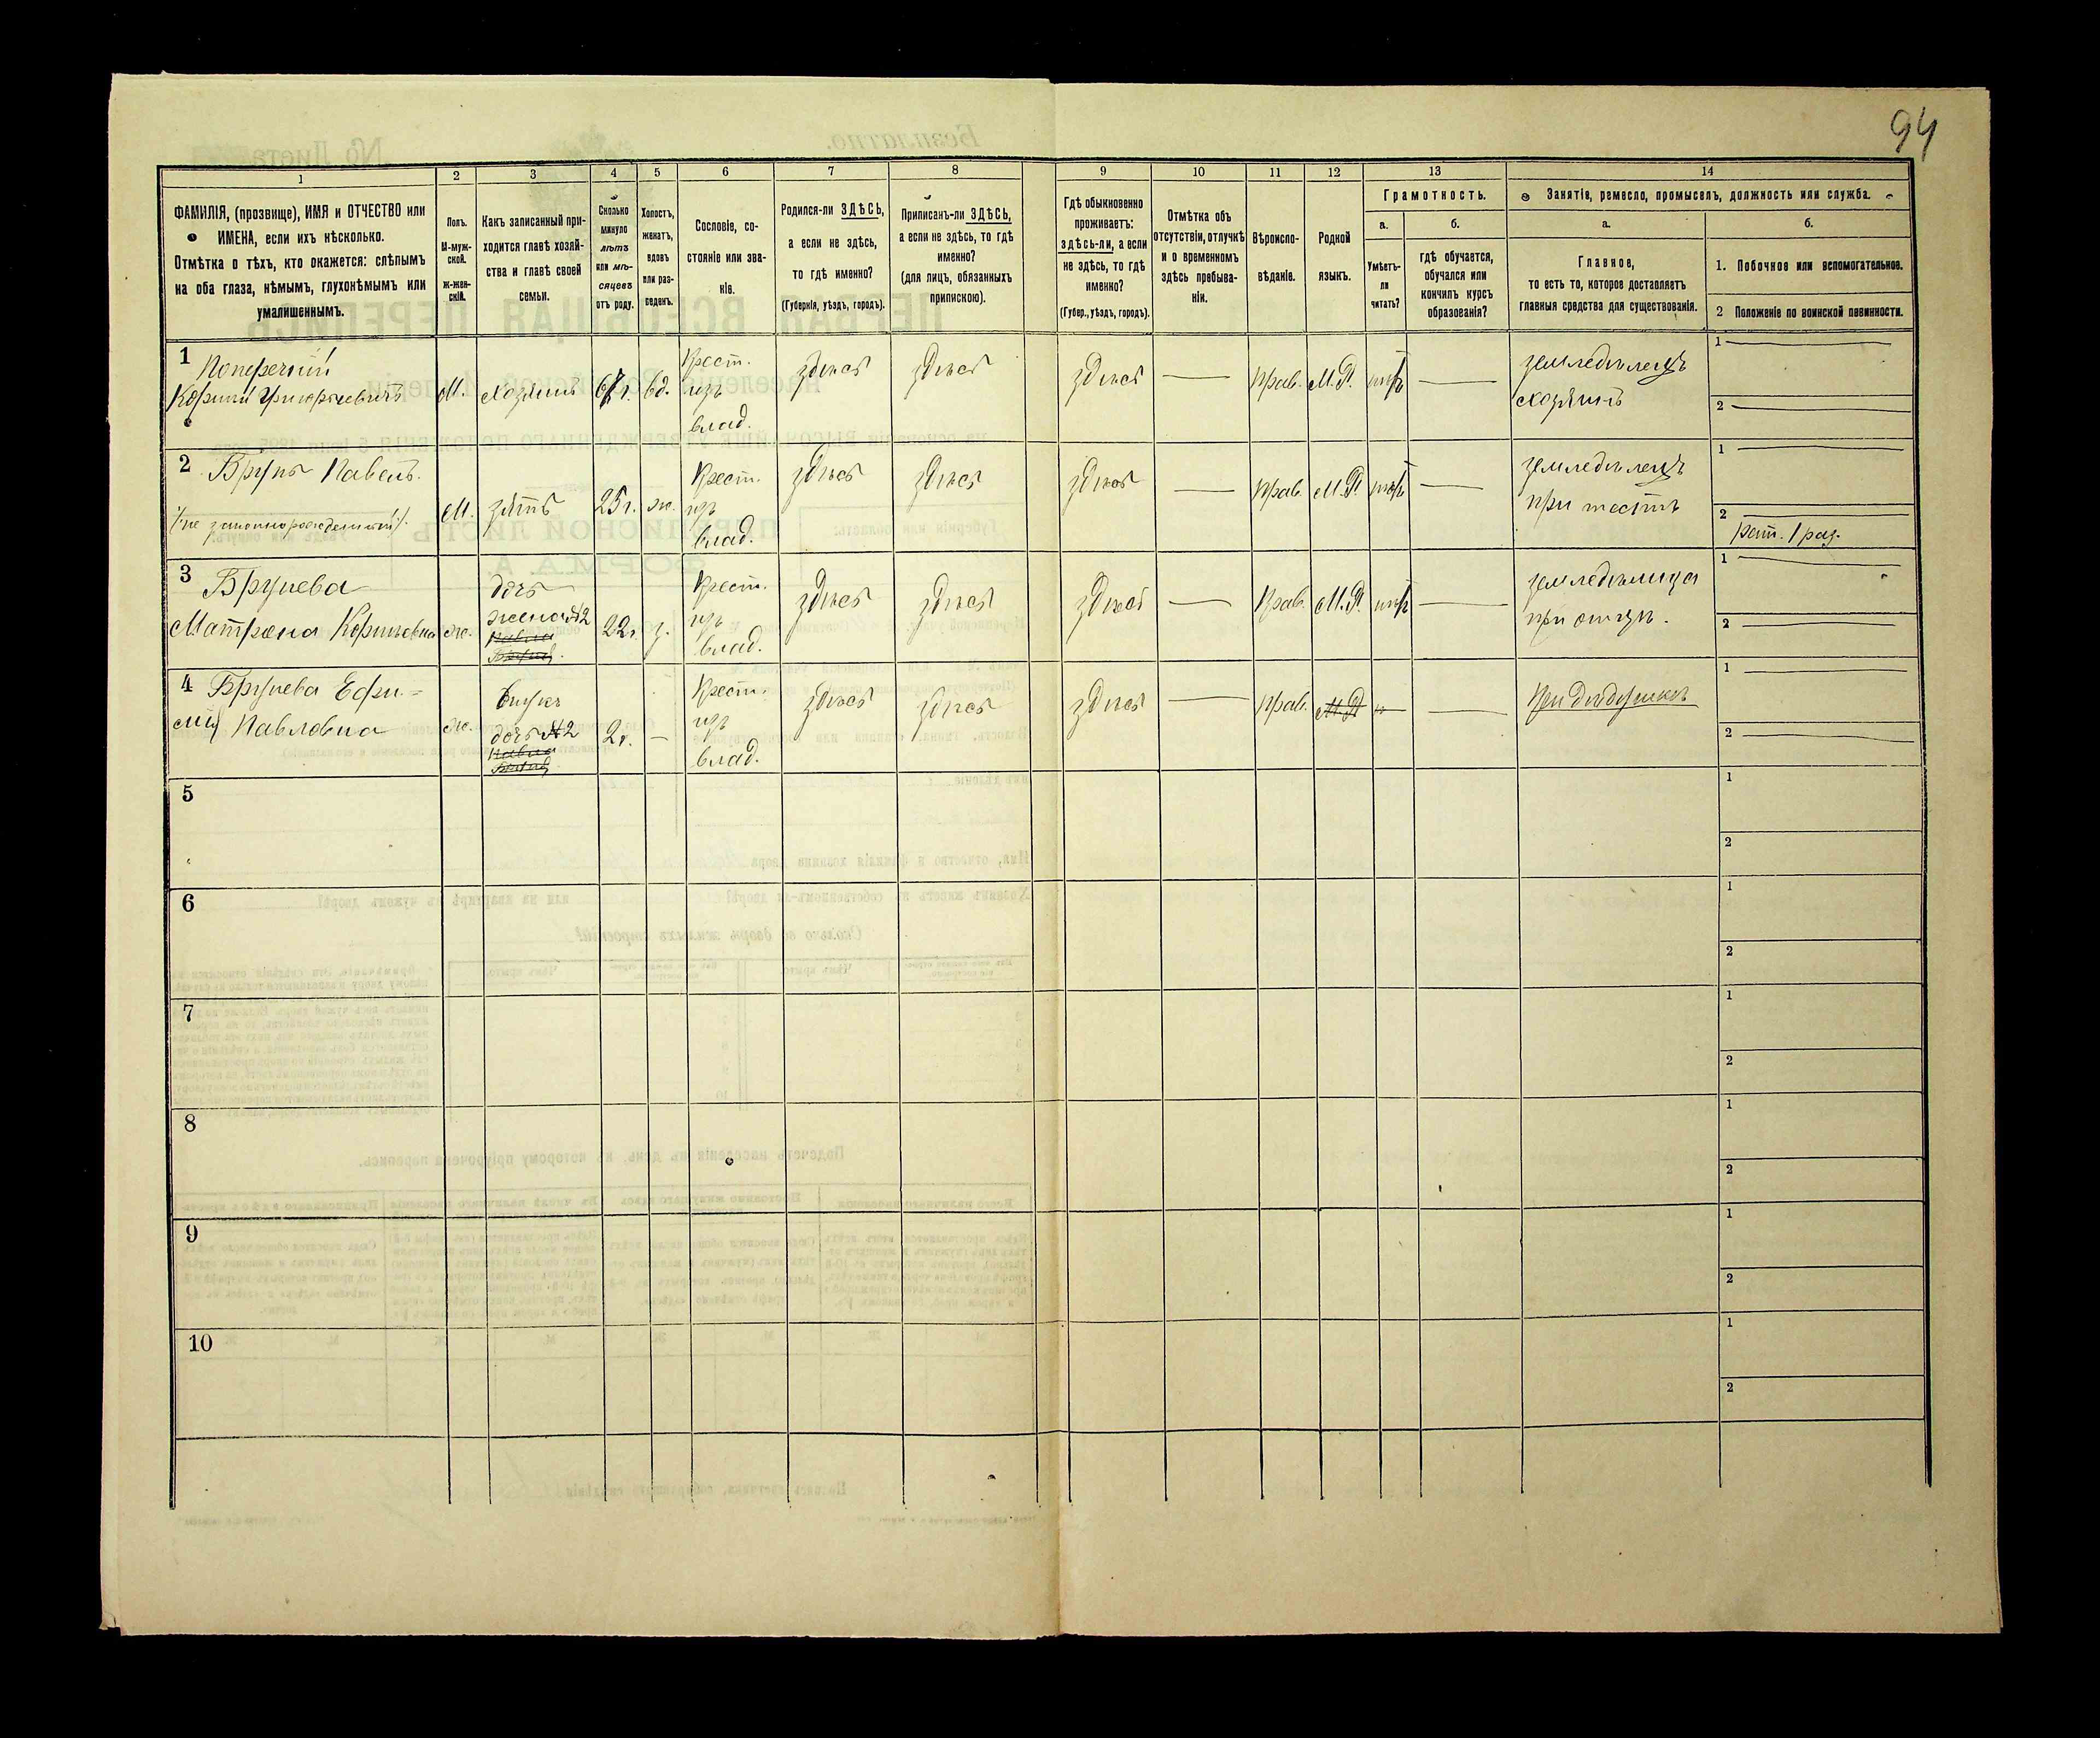 94
1 2 3 4 5 6 7 8 9 10 11 12 13 14
ФАМИЛІЯ, (прозвище), ИМЯ и ОТЧЕСТВО или
ИМЕНА, если ихъ нѣсколько.
Отмѣтка о тѣхъ, кто окажется: слѣпымъ
на оба глаза, нѣмымъ, глухонѣмымъ или
умалишеннымъ.
Полъ.
М-муж-
ской.
Ж-жен-
скій.
Какъ записанный при-
ходится главѣ хозяй-
ства и главѣ своей
семьи.
Сколько
минуло
лѣтъ
или мѣ-
сяцевъ
отъ роду.
Холостъ,
женатъ,
вдовъ
или раз-
веденъ.
Сословіе, со-
стояніе или зва-
ніе.
Родился-ли ЗДѢСЬ,
а если не здѣсь,
то гдѣ именно?
(Губернія, уѣздъ, городъ).
Приписанъ-ли ЗДѢСЬ,
а если не здѣсь, то гдѣ
именно?
(для лицъ, обязанныхъ
припискою).
Гдѣ обыкновенно
проживаетъ:
здѣсь-ли, а если
не здѣсь, то гдѣ
именно?
(Губер., уѣздъ, городъ).
Отмѣтка объ
отсутствіи, отлучкѣ
и о временномъ
здѣсь пребыва-
ніи.
Вѣроиспо-
вѣданіе.
Родной
языкъ.
Грамотность.
а.
Умѣетъ-
ли
читать?
б.
гдѣ обучается,
обучался или
кончилъ курсъ
образованія?
Занятіе, ремесло, промыселъ, должность или служба.
а.
Главное,
то есть то, которое доставляетъ
главныя средства для существованія.
б.
1. Побочное или вспомогательное.
2 Положеніе по воинской повинности.
1 Поперечній
Корній Григорьевичъ
М.
хозяинъ
67 г.
вд.
Крест.
изъ
влад.
здѣсь
здѣсь
здѣсь
Прав.
М.Р.
нѣтъ
земледѣлецъ
хозяинъ
1
2
2 Брунь Павелъ.
/не законнорожденный/.
М.
зять
25 г.
ж.
Крест.
изъ
влад.
здѣсь
здѣсь
здѣсь
Прав.
М.Р.
нѣтъ
земледѣлецъ
при тестѣ
1
2
рат. 1 раз.
3 Брунева
Матрена Корніевна
ж.
дочь
жена №2
22 г.
з.
Крест.
изъ
влад.
здѣсь
здѣсь
здѣсь
Прав.
М.Р.
нѣтъ
земледѣлица
при отцѣ.
1
2
4 Брунева Ефи-
мія Павловна
ж.
внука
дочь №2
2 г.
Крест.
изъ
влад.
здѣсь
здѣсь
здѣсь
Прав.
М.Р.
При дѣдушкѣ
1
2
5
1
2
6
1
2
7
1
2
8
1
2
9
1
2
10
1
2